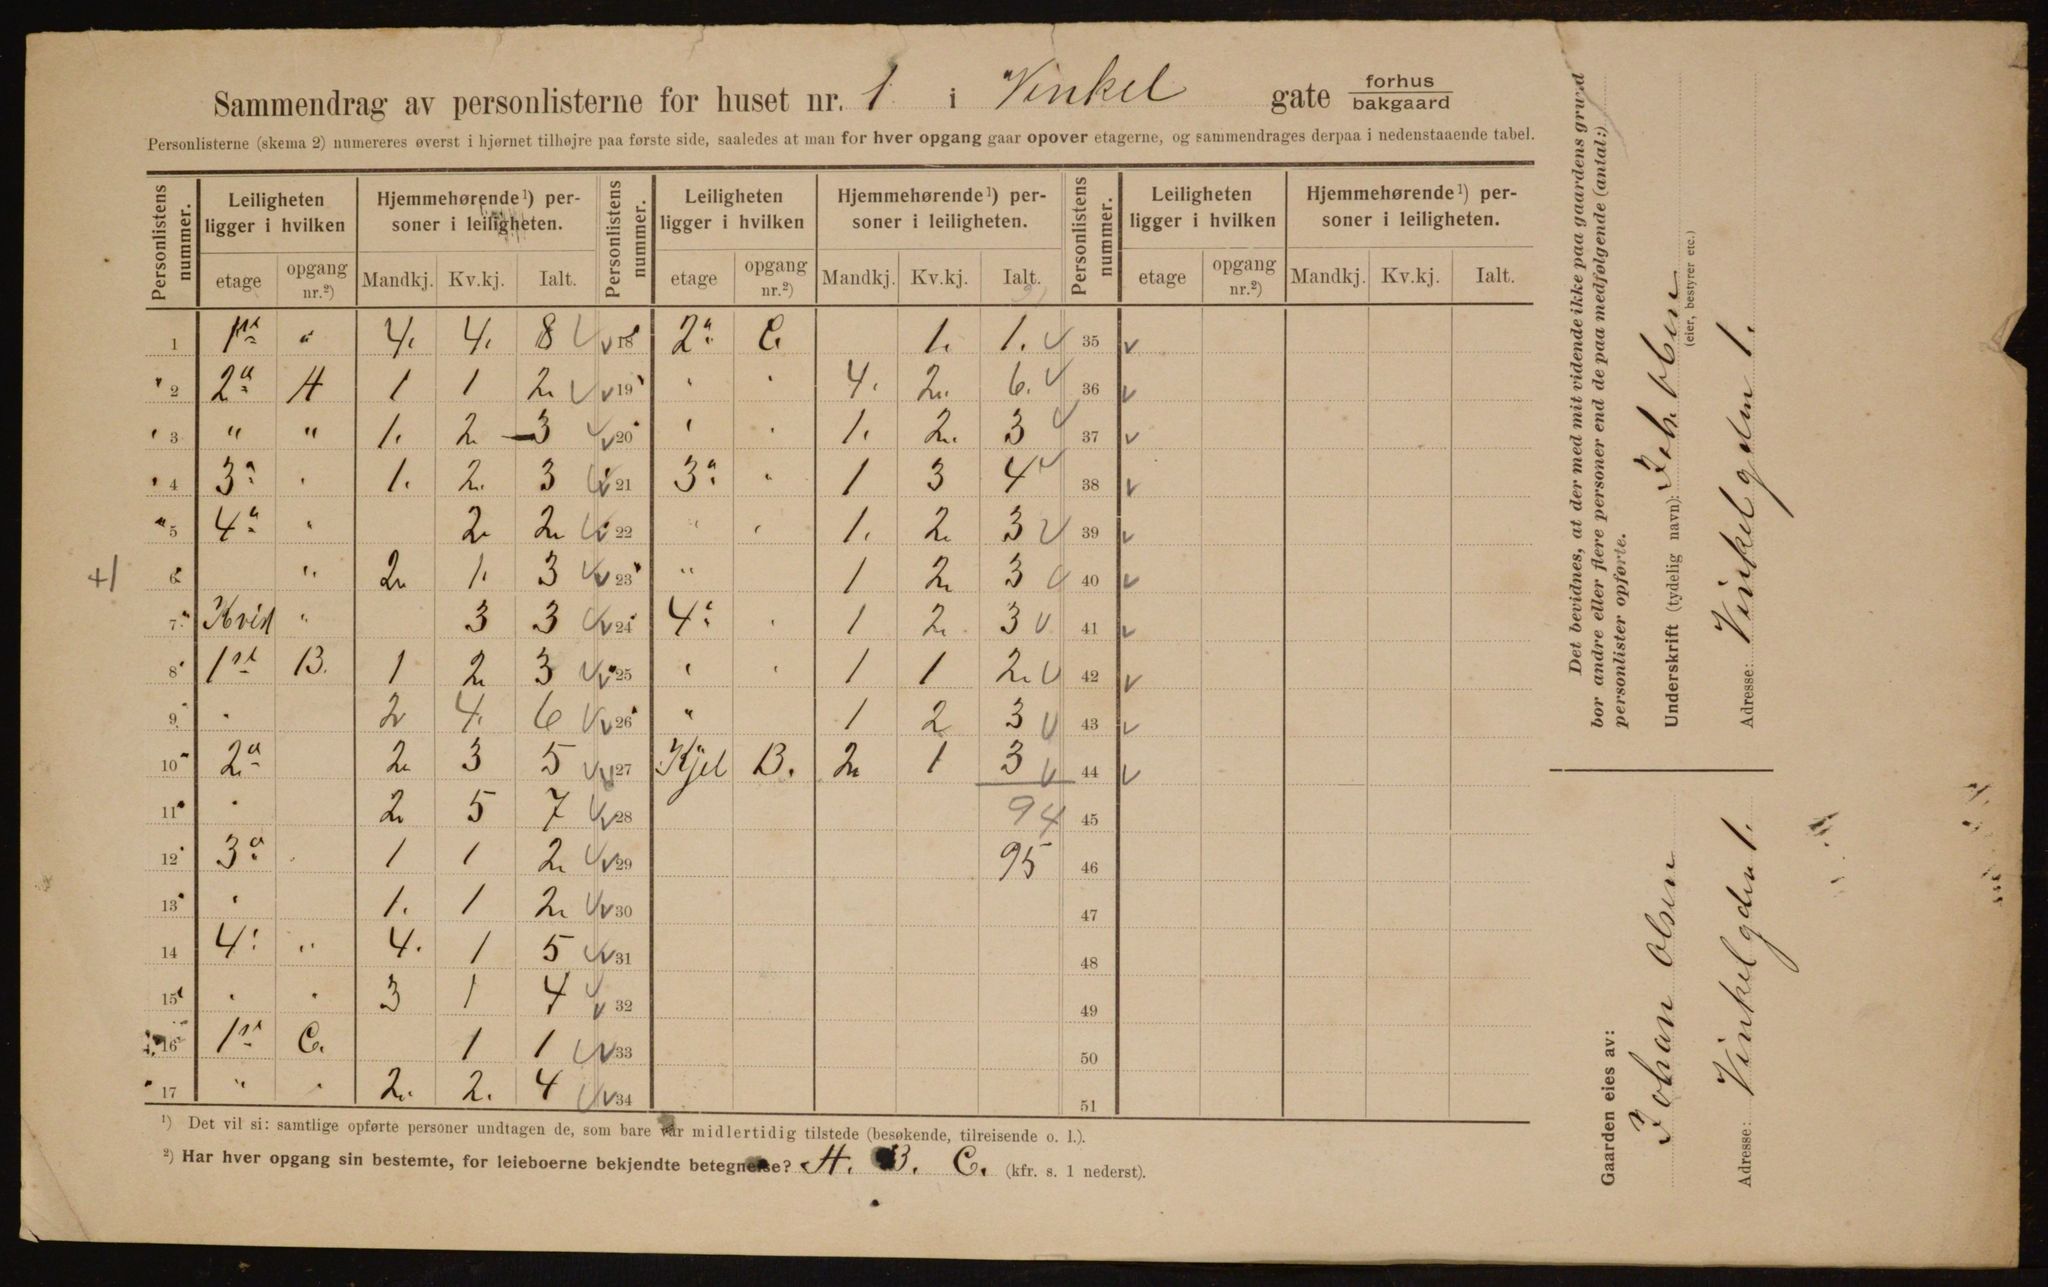 Sammendrag av personlisterne for huset nr. 1 i Vinkel gate forhus bakgaard
Personlisterne (skema 2) numereres øverst i hjørnet tilhøjre paa første side, saaledes at man for hver opgang gaar opover etagerne, og sammendrages derpaa i nedenstaaende tabel.
Personlistens nummer. Leiligheten ligger i hvilken Hjemmehørende ¹) personer i leiligheten. Personlistens nummer. Leiligheten ligger i hvilken Hjemmehørende ¹) personer i leiligheten. Personlistens nummer. Leiligheten ligger i hvilken Hjemmehørende ¹) personer i leiligheten.
etage opgang nr.²) Mandkj. Kv.kj. Ialt. etage opgang nr.²) Mandkj. Kv.kj. Ialt. etage opgang nr.²) Mandkj. Kv.kj. Ialt.
1 1st " 4. 4. 8 18 2" C. 1. 1. 35
2 2a A 1 1 2 19 " " 4. 2. 6. 36
3 " " 1. 2 3 20 " " 1. 2. 3 37
4 3a " 1. 2. 3 21 3a " 1 3 4 38
5 4a " 2 2 22 " " 1. 2 3 39
+1 6 " 2 1. 3 23 " 1 2 3 40
7 Kvist " 3 3 24 4" " 1 2 3 41
8 1st B. 1 2 3 25 " " 1 1 2 42
9 " 2 4. 6 26 " 1 2 3 43
10 2a 2 3 5 27 Kjel B. 2 1 3 44
11 " 2 5 7 28 94 45
12 3a 1 1 2 29 95 46
13 " 1. 1 2 30 47
14 4" " 4. 1 5 31 48
15 " " 3 1 4 32 49
16 1st C. 1 1 33 50
17 " " 2. 2. 4 34 51
¹) Det vil si: samtlige opførte personer undtagen de, som bare var midlertidig tilstede (besøkende, tilreisende o. l.).
²) Har hver opgang sin bestemte, for leieboerne bekjendte betegnelse? A. B. C. (kfr. s. 1 nederst).
Det bevidnes, at der med mit vidende ikke paa gaardens grund
bor andre eller flere personer end de paa medfølgende (antal:)
personlister opførte.
Underskrift (tydelig navn): Joh. Olsen
(eier, bestyrer etc.)
Adresse: Vinkelgaden 1.
Gaarden eies av:
Johan Olsen
Adresse: Vinkelgden 1.